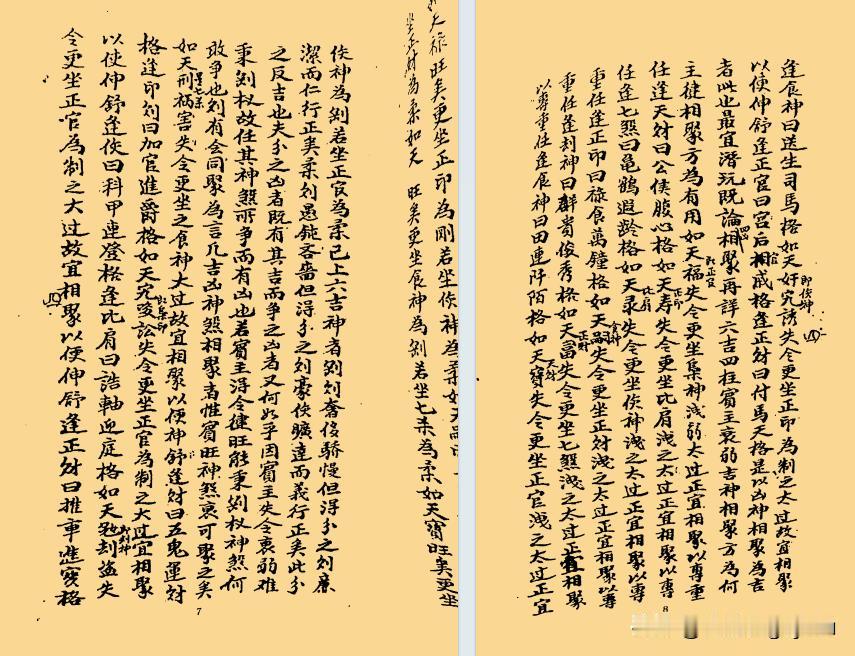 天祿旺矣更坐正印為剛若坐侫神為柔如天
坐正財為柔如天 旺矣更坐食神為刚若坐七杀為柔如天寶旺矣更坐
侫神為刚若坐正官為柔已上六吉神者刚刚奢侈驕慢但淂分之刚廉
潔而仁行正矣柔刚愚鈍吝嗇但淂分之刚豪侠曠達而義行正矣此分
之反吉也夫分之凶者既有其吉而争之凶者又何如乎因賓主失令衰弱难
秉刚权故任其神煞所争而有凶也若賓主淂令徤旺能秉刚权神煞何
敢争也刚有会同聚為言凡吉凶神煞相聚者惟賓旺神煞衰可聚之矣
如天刑祸害失令更坐之食神太过故宜相聚以便神舒逢財曰五鬼運財
格逢印刚曰加官進爵格如天宂 訟失令更坐正官為制之大过宜相聚
以使伸舒逢侫曰科甲連登格逢比肩曰誥軸迎庭格如天 刦盗失
令更坐正官為制之大过故宜相聚以便伸舒逢正財曰推車進寳格
7
逢食神曰送生司馬格如天奸宄誘失令更坐正印為制之太过故宜相聚
以使伸舒逢正官曰宫后相成格逢正財曰付馬天格是以凶神相聚為吉
者此也最宜潛玩既論相聚再詳六吉四柱賓主衰弱吉神相聚方為何
主徤相聚方為有用如天福失令更坐集神洩弱太过正宜相聚以專重
任逢天財曰公侯腹心格如天寿失令更坐比肩洩之太过正宜相聚以專
任逢七煞曰龟鶴遐龄格如天录失令更坐侫神洩之太过正宜相聚以專
重任逢正印曰禄食萬鐘格如天嗣失令更坐正財洩之太过正宜相聚以專
重任逢刦神曰群貴俊秀格如天富失令更坐七煞洩之太过正宜相聚
以專重任逢食神曰田連阡陌格如天寶失令更坐正官洩之太过正宜
8